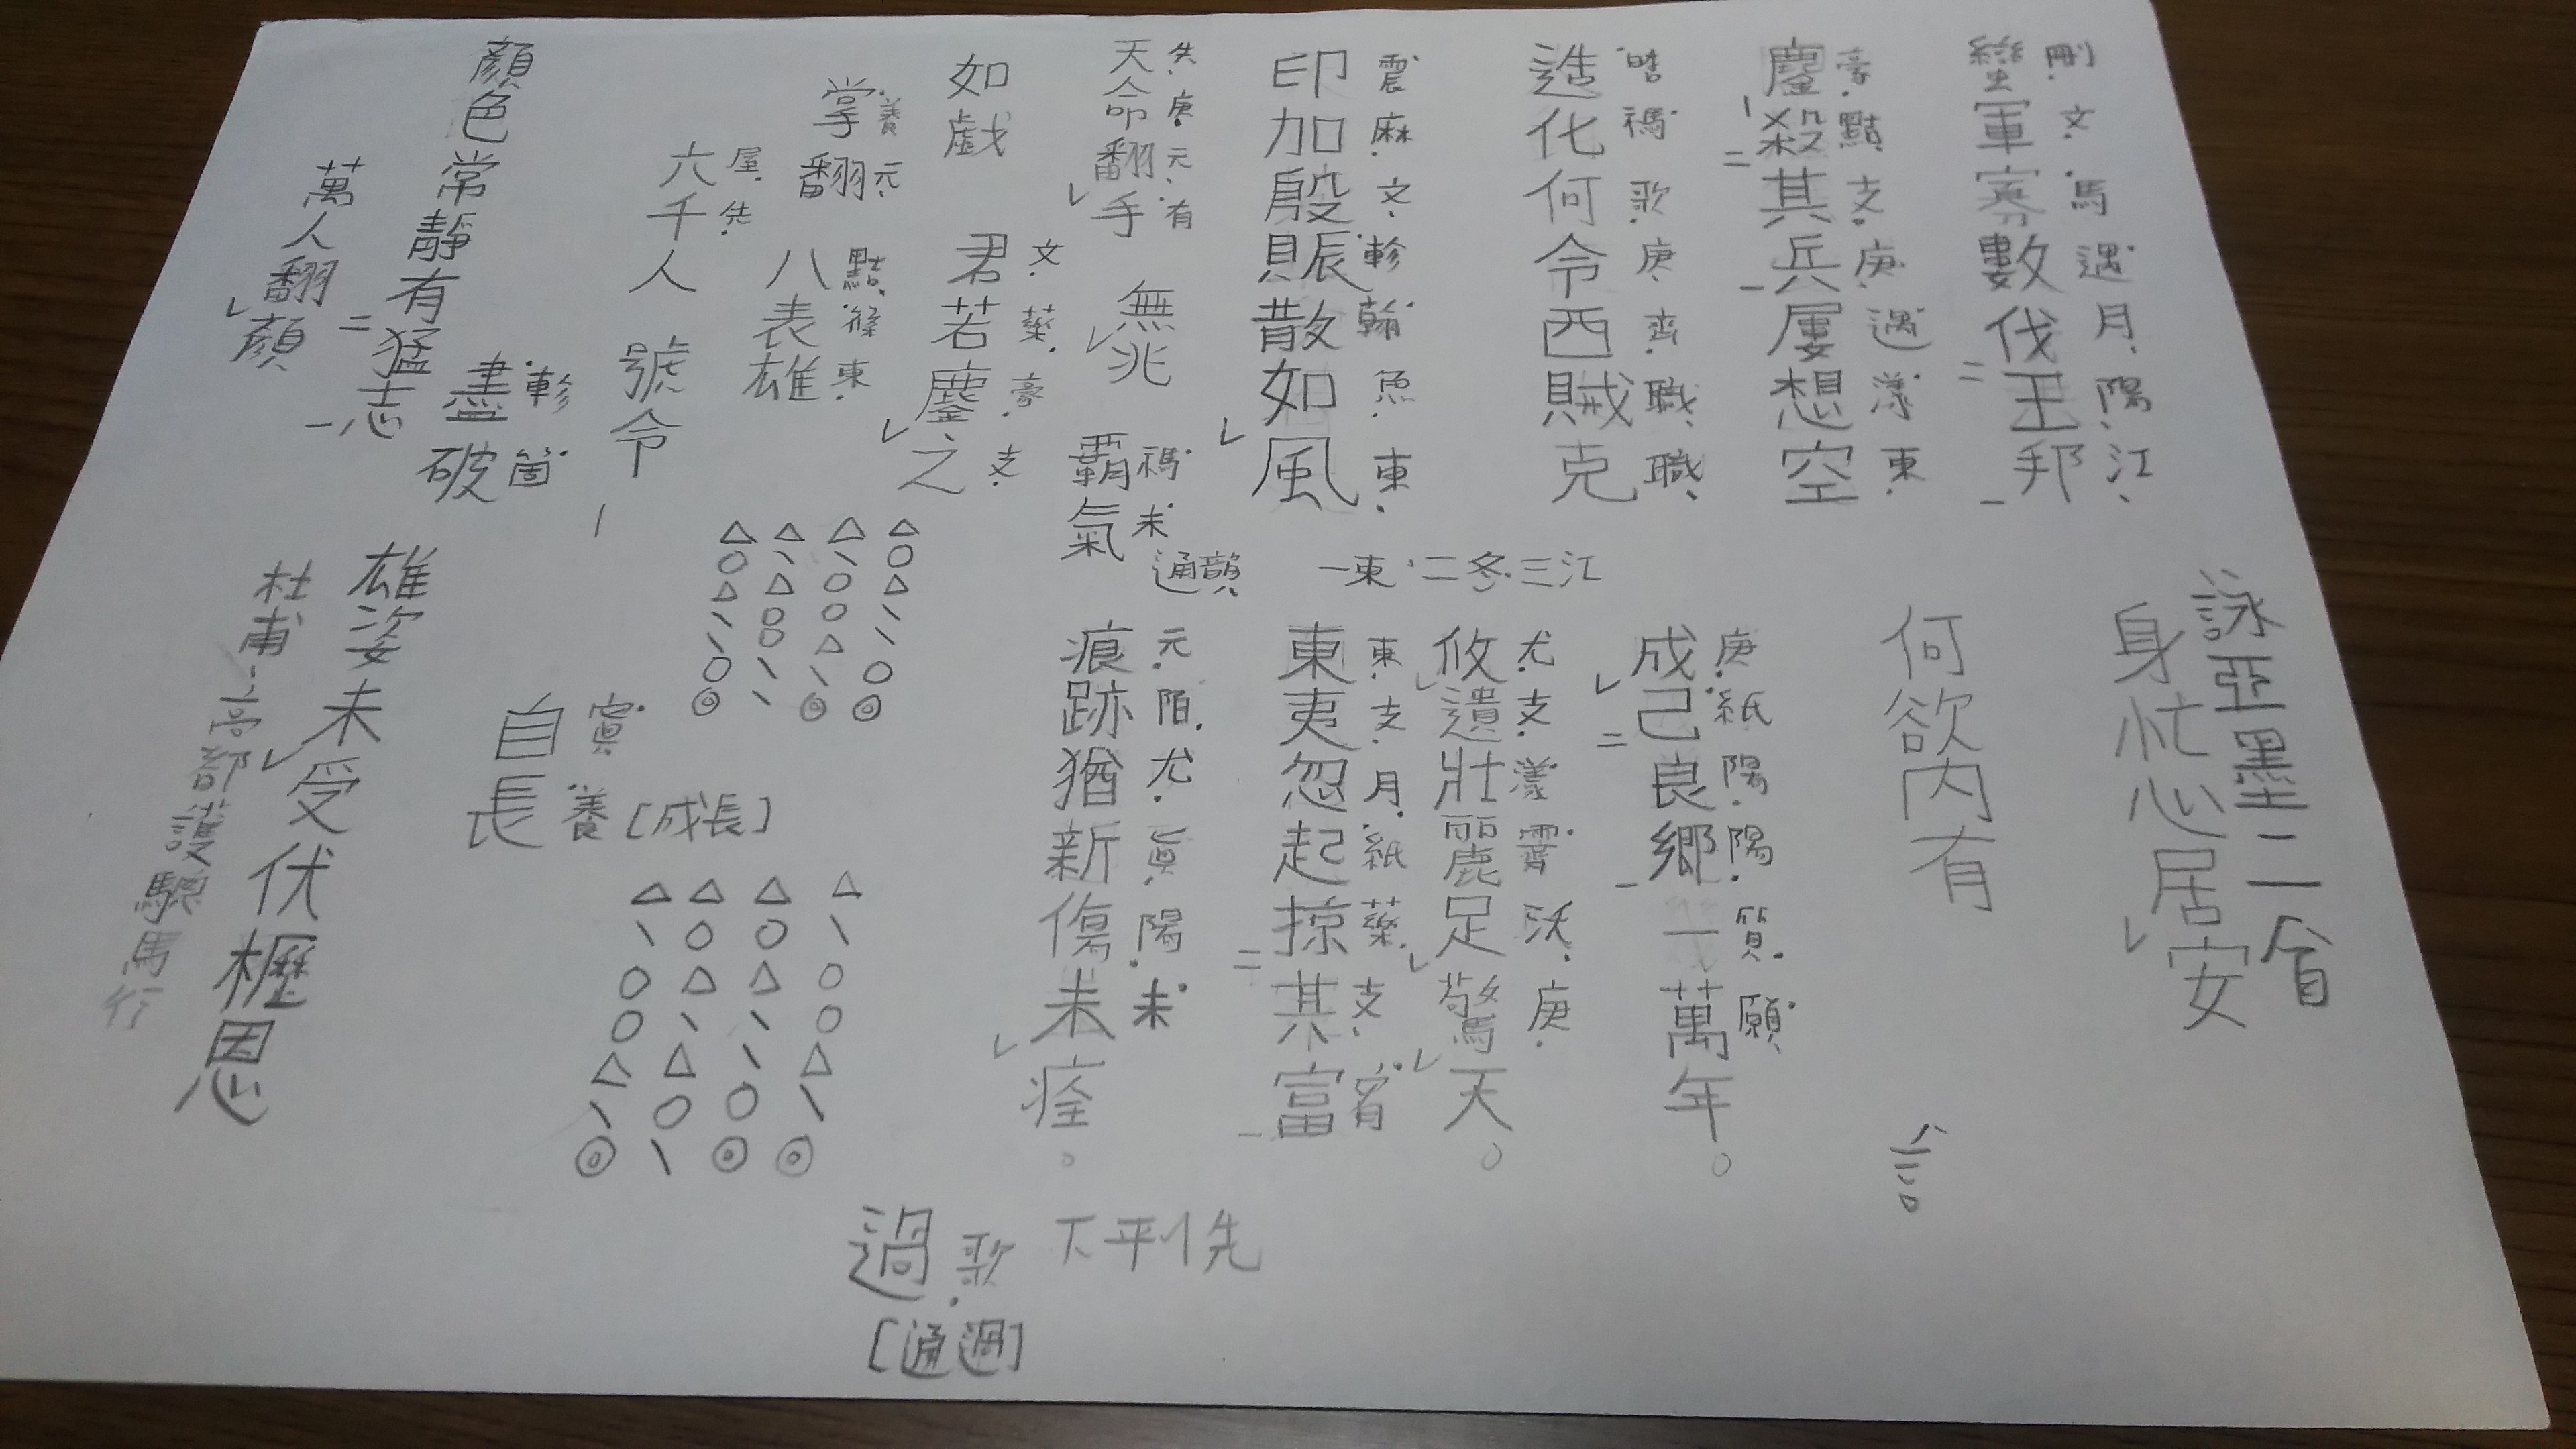 詠亞墨二首
身忙心居安
蠻軍寡數伐王邦
刪文馬遇月陽江
鏖殺其兵屢想空
豪黠支庚遇漾東
何欲内有
造化何令西賊克
皓禡歌庚齊職職
成己良鄉一萬年。
庚紙陽陽質願
印加殷賑散如風
震麻文軫翰魚東
攸遺壯麗足驚天。
尤支漾霽沃庚
一東二冬三江
通韻
東夷忽起掠其富
東支月紙藥支宥
天命翻手
先庚元有
無兆
覇氣
禡未
痕跡猶新傷未痊。
元陌尤眞陽未
如戯
君若鏖之
文藥豪支
掌翻
養元
八表雄
黠篠東
六千人
屋先
號令
△△△△
○\\○
△△○△
\○○\
\○△\
○\\○
◎\◎◎
顏色常靜有猛志
萬人翻顏
盡破
軫箇
雄姿未受伏櫪恩
杜甫
高都護驄馬行
自長
寘養[成長]
△△△△
\○○\
○△△○
○\\○
△△\△
\○○\
◎\◎◎
過歌
下平1先
[通過]